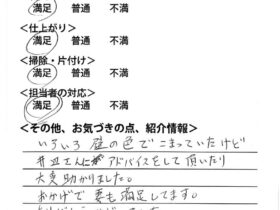 満足 普通 不満
<仕上がり>
満足 普通 不満
<掃除・片付け>
満足 普通 不満
<担当者の対応>
満足 普通 不満
<その他、お気づきの点、紹介情報>
いろいろ 壁の色でこまっていたけど
さんに アドバイスをして頂いたり
大変助かりました。
おかげで 妻も満足してます。